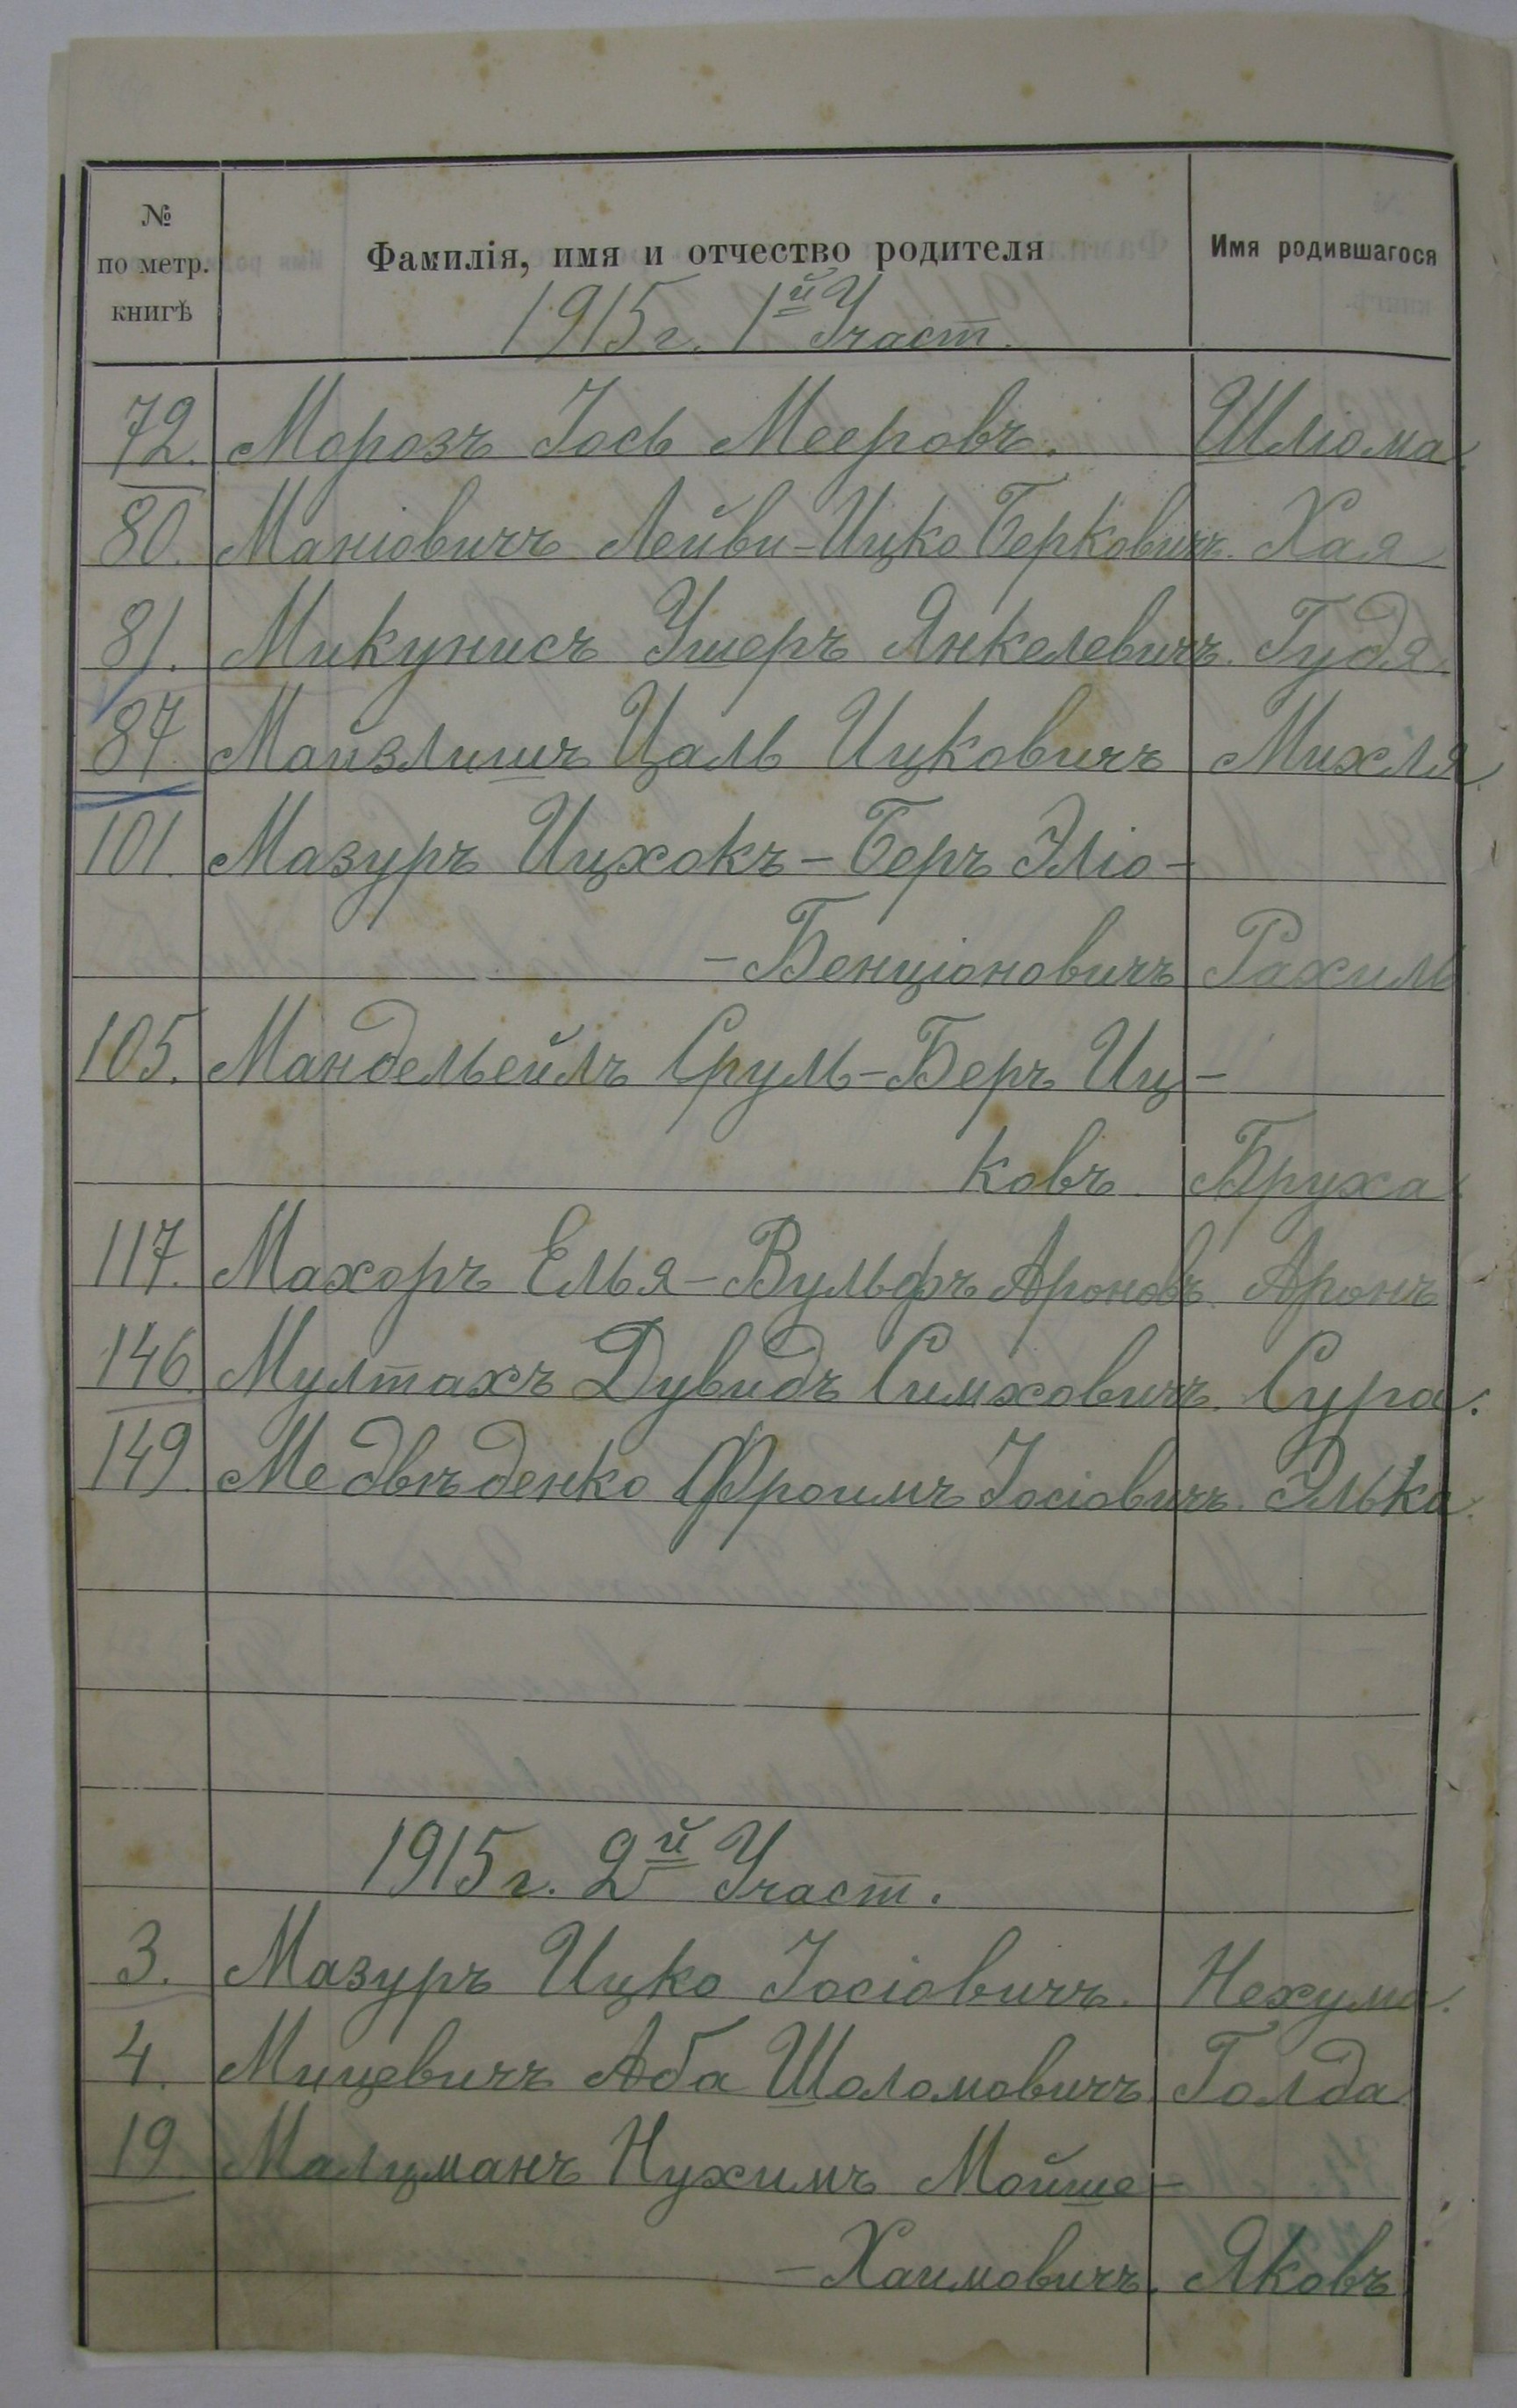 № по метр. книгѣ
Фамилія, имя и отчество родителя
Имя родившагося
1915 г. 1й Участ.
72. Морозъ Іось Мееровъ. Шліома.
80. Маніовичъ Лейви-Ицко Берковичъ. Хая
81. Микунисъ Ушеръ Янкелевичъ. Гудя.
87. Майзлишъ Цаль Ицковичъ Михля.
101. Мазуръ Ицхокъ-Беръ Эліо-
-Бенціоновичъ Рахиль
105. Мандельейлъ Сруль-Беръ Иц-
ковъ. Бруха.
117. Махоръ Елья-Вульфъ Ароновъ. Аронъ
146. Мултахъ Дувидъ Симховичъ. Сура.
149. Медвѣденко Фроимъ Іосіовичъ. Элька.
1915 г. 2й Участ.
3. Мазуръ Ицко Іосіовичъ. Нехума.
4. Мицевичъ Аба Шоломовичъ. Голда.
19. Малцманъ Нухимъ Мойше-
-Хаимовичъ. Яковъ